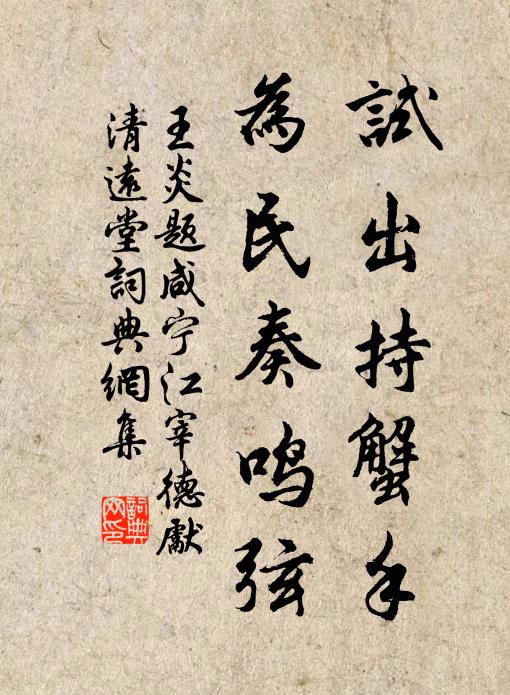 試出持蟹手
為民奏鸣弦
王炎题咸宁江宰德獻
清遠堂詞典網集
詞典
网印